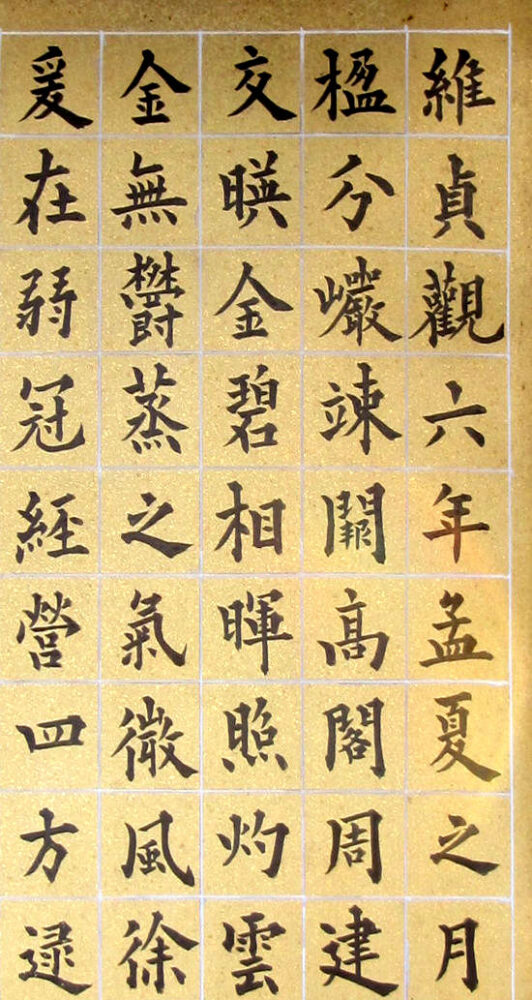 維貞觀六年孟夏之月
楹分巗竦闢高閣周建
交暎金碧相暉照灼雲
金無鬱蒸之氣微風徐
爰在弱冠經營四方逯